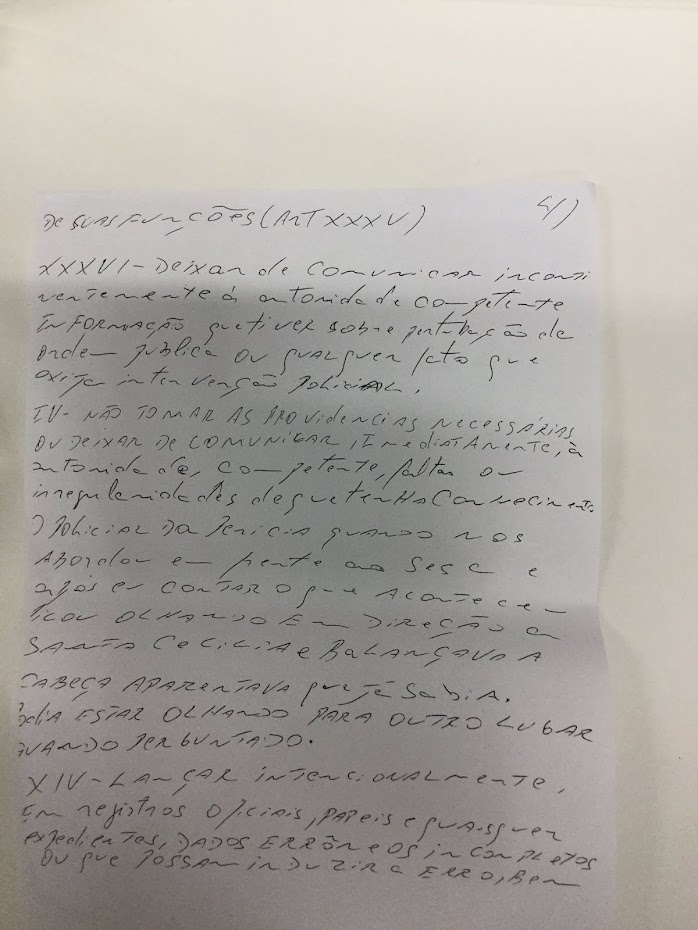 DE SUAS FUNÇÕES (ART XXXV) 4)
XXXVI - Deixar de comunicar inconti
nentemente à autoridade competente
INFORMAÇÃO que tiver sobre pertubação de
ordem pública ou qualquer fato que
exija intervenção POLICIAL.
IV - NÃO TOMAR AS PROVIDENCIAS NECESSÁRIAS
OU DEIXAR DE COMUNICAR, Imediatamente, à
autoridade, competente, faltas ou
irregularidades de que tenha conhecimento
) Policial da Pericia quando nos
Abordou em frente ao Sesc e
após eu contar o que aconteceu
ficou OLHANDO Em DIREÇÃO a
SANTA CeCiLiA e BALANÇAVA A
CABEÇA APARENTAVA que já SABIA.
Pedia ESTAR OLHANDO PARA OUTRO LUGAR
QUANDO PERGUNTADO.
XIV - LANÇAR intencionalmente,
Em registros oficiais, PAPeis e quaisquer
expedientes, DADOS ERRÔNEOS incompletos
OU que POSSAM induzir a ERRO, Bem